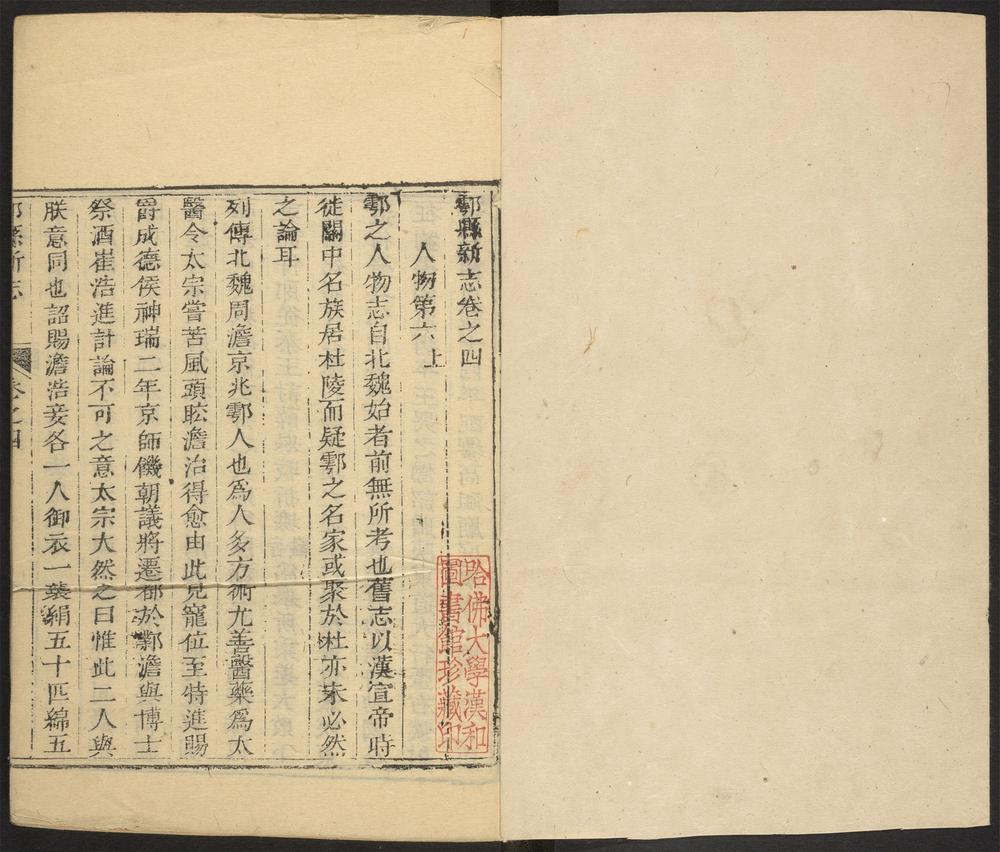 鄠縣新志卷之四
人物第六上
鄠之人物志自北魏始者前無所考也舊志以漢宣帝時
徙關中名族居杜陵而疑鄠之名家或聚於杜亦未必然
之論耳
列傳北魏周澹京兆鄠人也爲人多方術尤善醫藥爲太
醫令太宗嘗苦風頭眩澹治得愈由此見寵位至特進賜
爵成德侯神瑞二年京師饑朝議將遷都於鄴澹與博士
祭酒崔浩進計論不可之意太宗大然之曰惟此二人與
朕意同也詔賜澹浩妾各一人御衣一襲絹五十匹綿五
鄠縣新志 卷之四
哈佛大學漢和
圖書館珍藏印